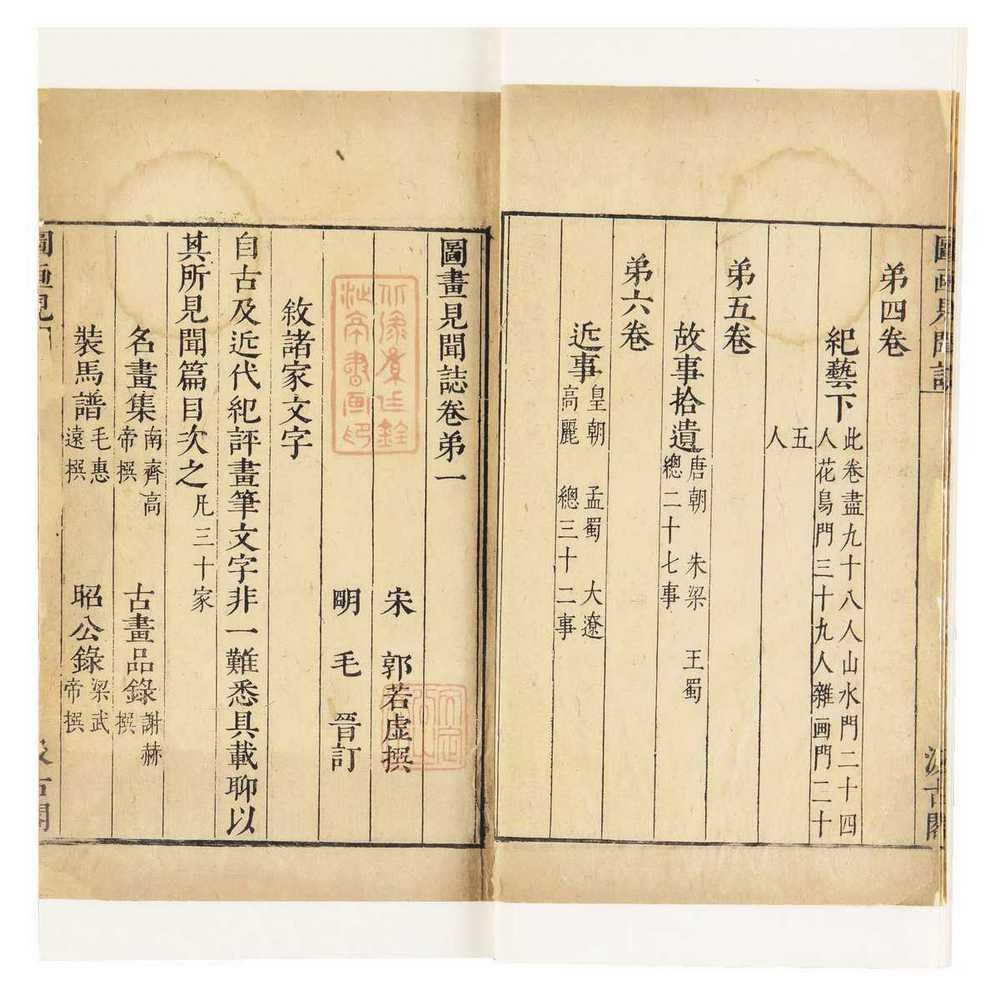 圖画見聞誌 汲古閣
弟四卷
紀藝下 此卷盡九十八人山水門二十四
人花鳥門三十九人雜画門二十
五
人
弟五卷
故事拾遺 唐朝 朱梁 王蜀
總二十七事
弟六卷
近事 皇朝 孟蜀 大遼
高麗 總三十二事
圖畫見聞誌卷弟一
宋 郭若虛撰
明 毛 晉訂
敘諸家文字
自古及近代紀評畫筆文字非一難悉具載聊以
其所見聞篇目次之 凡三十家
名畫集 南齊高帝撰 古畫品錄 謝赫撰
裝馬譜 毛惠遠撰 昭公錄 梁武帝撰
圖画見 汲古閣